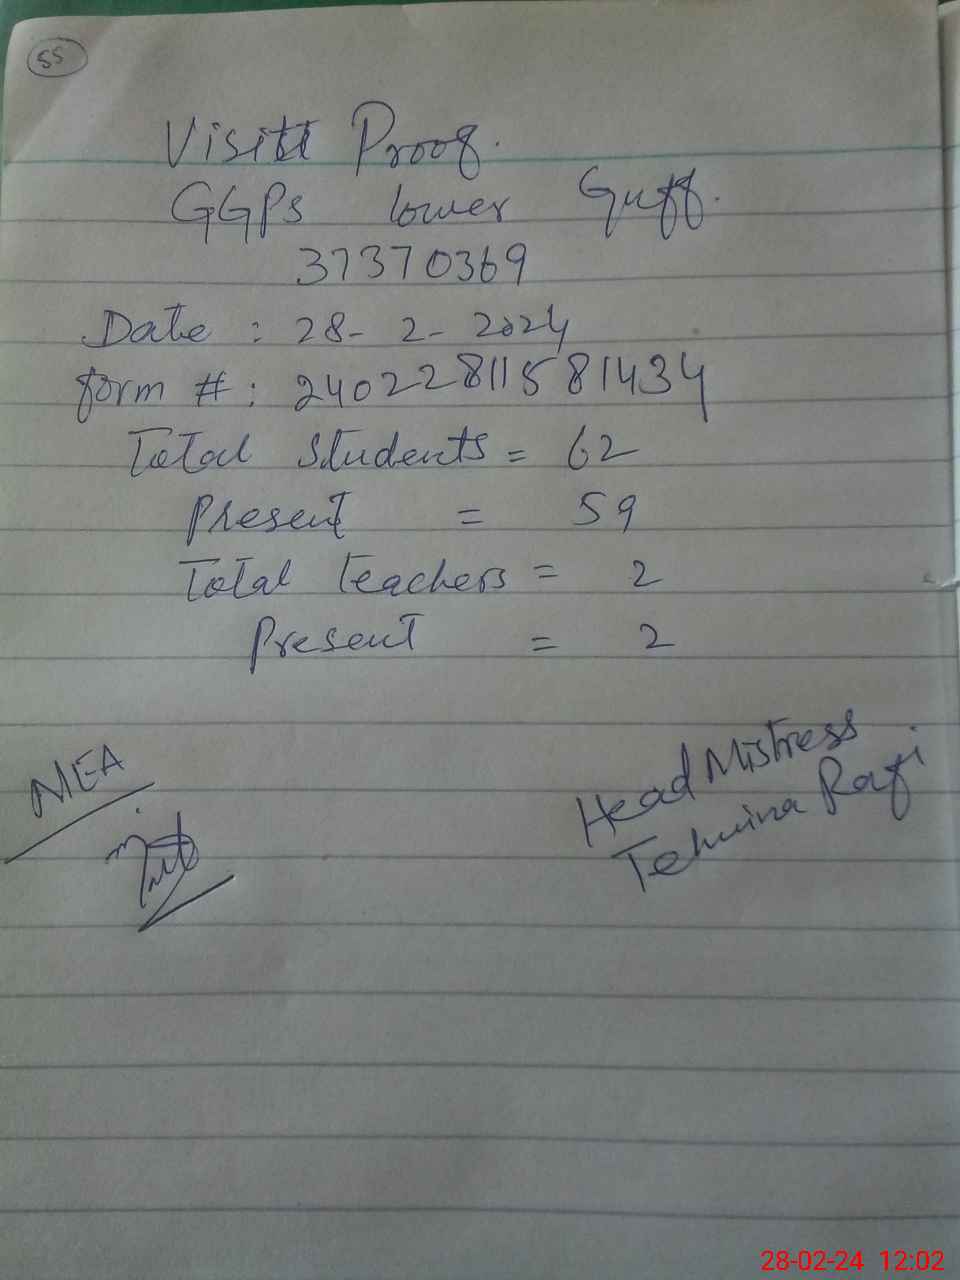 55
Visit Proof.
GGPS lower Guff.
37370369
Date : 28-2-2024
form # : 24022811581434
Total students = 62
Present = 59
Total teachers = 2
Present = 2
MEA
Head Mistress
Tehmina Rafi
28-02-24 12:02